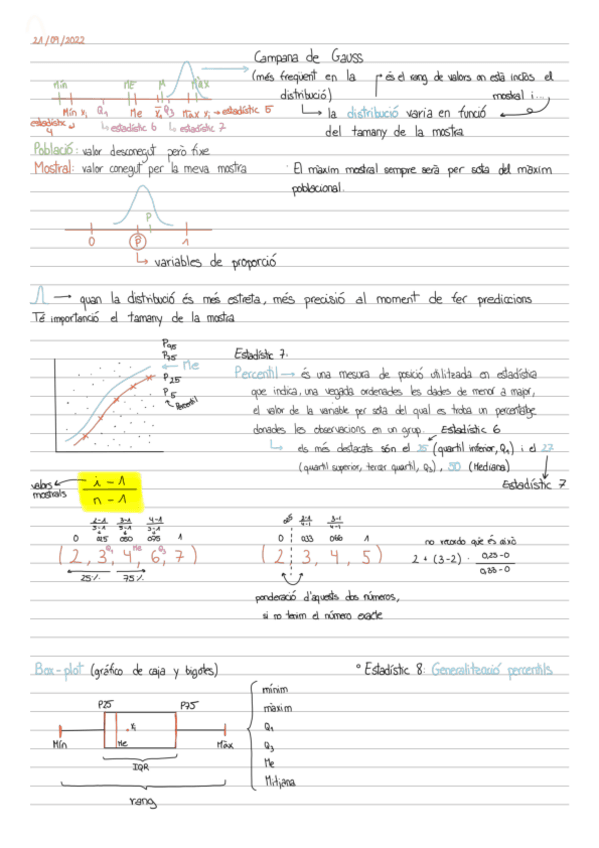 21/09/2022
Campana de Gauss
(més freqüent en la distribució)
és el rang de valors on està inclòs el mostral i...
la distribució varia en funció
del tamany de la mostra
Mín ME M Màx
Mín xi Q1 Me Q3 Màx xi → estadístic 5
estadístic 4
estadístic 6 estadístic 7
Població: valor desconegut però fixe
Mostral: valor conegut per la meva mostra
· El màxim mostral sempre serà per sota del màxim
poblacional.
P
0 P 1
variables de proporció
→ quan la distribució és més estreta, més precisió al moment de fer prediccions
Té importanció el tamany de la mostra
P95
P75
Me
P25
P5
Percentil
Estadístic 7.
Percentil → és una mesura de posició utilitzada en estadística
que indica, una vegada ordenades les dades de menor a major,
el valor de la variable per sota del qual es troba un percentatge
donades les observacions en un grup. Estadístic 6
els més destacats són el 25 (quartil inferior, Q1) i el 27
(quartil superior, tercer quartil, Q3), 50 (Mediana)
Estadístic 7
valors mostrals
i - 1
n - 1
2-1 3-1 4-1
5-1 5-1 5-1
0 0'25 0'50 0'75 1
(2, 3, 4, 6, 7)
Q1 Me Q3
25% 75%
0'25 2-1 3-1
4-1 4-1
0 0,33 0,66 1
(2 3, 4, 5)
ponderació d'aquests dos números,
si no tenim el número exacte
no recordo què és això
2 + (3-2) · 0,25-0
0,33-0
Box-plot (gráfico de caja y bigotes)
P25 P75
xi
Mín Me Màx
IQR
rang
mínim
màxim
Q1
Q3
Me
Mitjana
° Estadístic 8: Generalització percentils